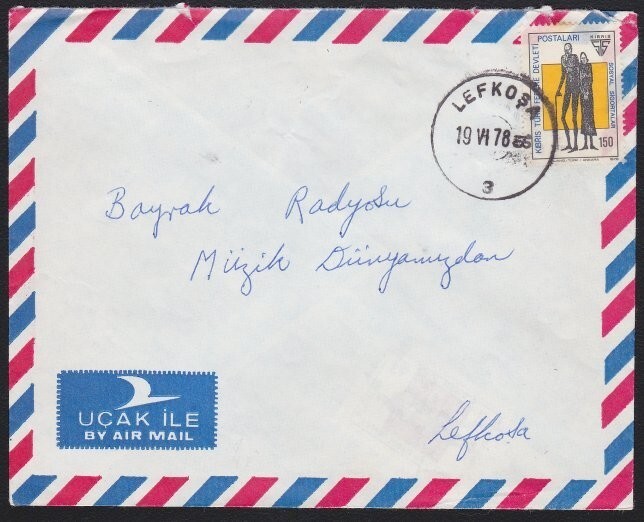 KIBRIS
KIBRIS TÜRK FEDERE DEVLETİ
POSTALARI
SOSYAL SİGORTALAR
150
LEFKOŞA
19 VI 78
3
Bayrak Radyosu
Müzik Dünyamızdan
UÇAK İLE
BY AIR MAIL
Lefkoşa